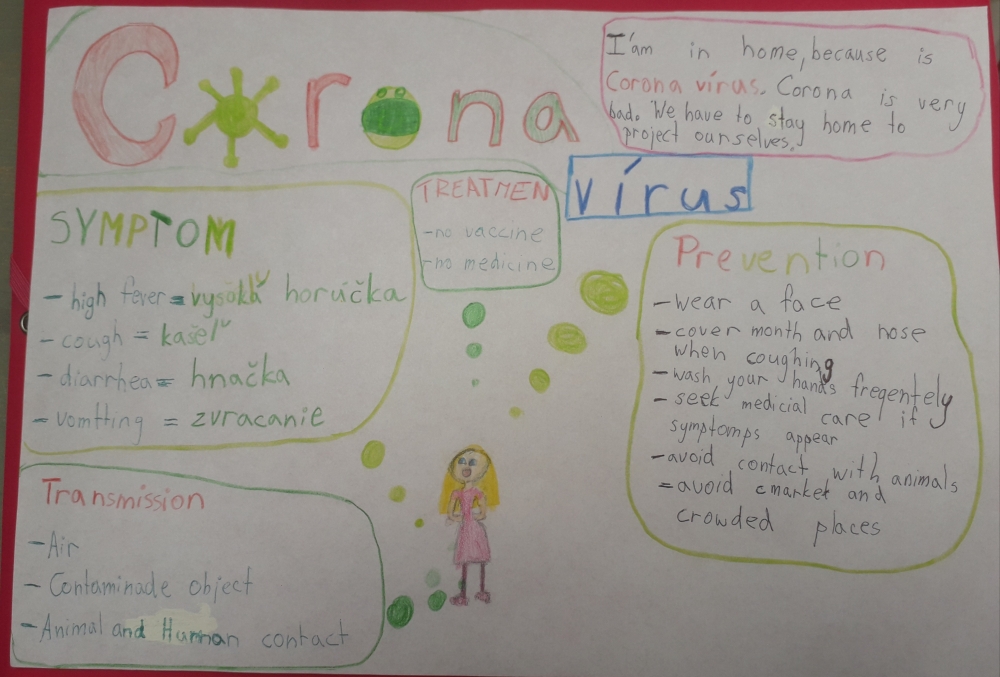 Corona
I'am in home, because is
Corona vírus. Corona is very
bad. We have to stay home to
project ourselves.
vírus
SYMPTOM
- high fever = vysoká horúčka
- cough = kašeľ
- diarrhea = hnačka
- vomtting = zvracanie
TREATMEN
- no vaccine
- no medicine
Prevention
- wear a face
- cover month and nose
when coughing
- wash your hands freqentely
- seek medicial care if
symptomps appear
- avoid contact with animals
= avoid cmarket and
crowded places
Transmission
- Air
- Contaminade object
- Animal and Human contact